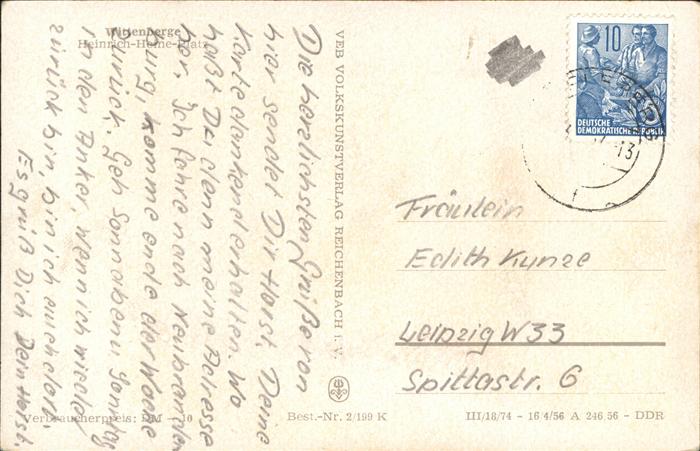 Wittenberge
Heinrich-Heine-Platz
Die herzlichsten Grüße von
hier sendet Dir Horst. Deine
Karte dankend erhalten. Wo
haßt Du denn meine Adresse
her. Ich fahre nach Neubranden
burg, komme ende der Woche
zurück. Geh Sonnabend, Sonntag
in den Anker. Wenn ich wieder
zurück bin, bin ich auch dort.
Es grüß Dich Dein Horst.
Verbraucherpreis: DM -,10
VEB VOLKSKUNSTVERLAG REICHENBACH i. V.
Best.-Nr. 2/199 K
10
DEUTSCHE
DEMOKRATISCHE REPUBLIK
Fräulein
Edith Kunze
Leipzig W 33
Spittastr. 6
III/18/74 - 16 4/56 A 246 56 - DDR